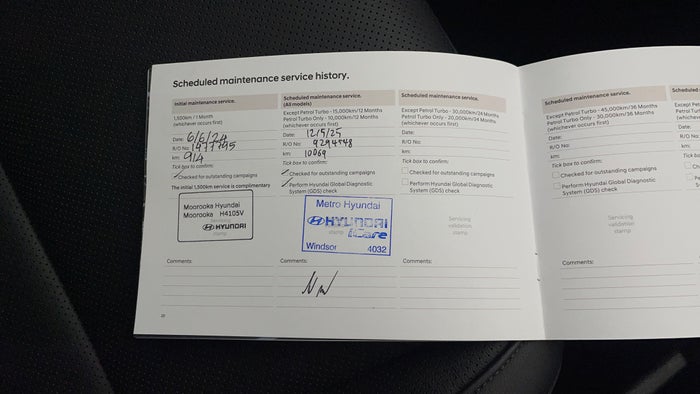 Scheduled maintenance service history.
Initial maintenance service.
1,500km / 1 Month
(whichever occurs first)
Date: 6/6/24
R/O No: 1977795
km: 914
Tick box to confirm:
Checked for outstanding campaigns
The initial 1,500km service is complimentary
Moorooka Hyundai
Moorooka H4105V
Servicing
HYUNDAI
Comments:
20
Scheduled maintenance service.
(All models)
Except Petrol Turbo - 15,000km/12 Months
Petrol Turbo Only - 10,000km/12 Months
(whichever occurs first)
Date: 12/5/25
R/O No:
km: 10069
Tick box to confirm:
Checked for outstanding campaigns
Perform Hyundai Global Diagnostic
System (GDS) check
Metro Hyundai
HYUNDAI
stamp iCare
Windsor 4032
Comments:
Scheduled maintenance service.
Except Petrol Turbo - 30,000km/24 Months
Petrol Turbo Only - 20,000km/24 Months
(whichever occurs first)
Date:
R/O No:
km:
Tick box to confirm:
Checked for outstanding campaigns
Perform Hyundai Global Diagnostic
System (GDS) check
Servicing
validation
stamp
Comments:
Scheduled maintenance service.
Except Petrol Turbo - 45,000km/36 Months
Petrol Turbo Only - 30,000km/36 Months
(whichever occurs first)
Date:
R/O No:
km:
Tick box to confirm:
Checked for outstanding campaigns
Perform Hyundai Global Diagnostic
System (GDS) check
Servicing
validation
stamp
Comments:
Except
Petrol
Date:
R/O No:
km:
Tick